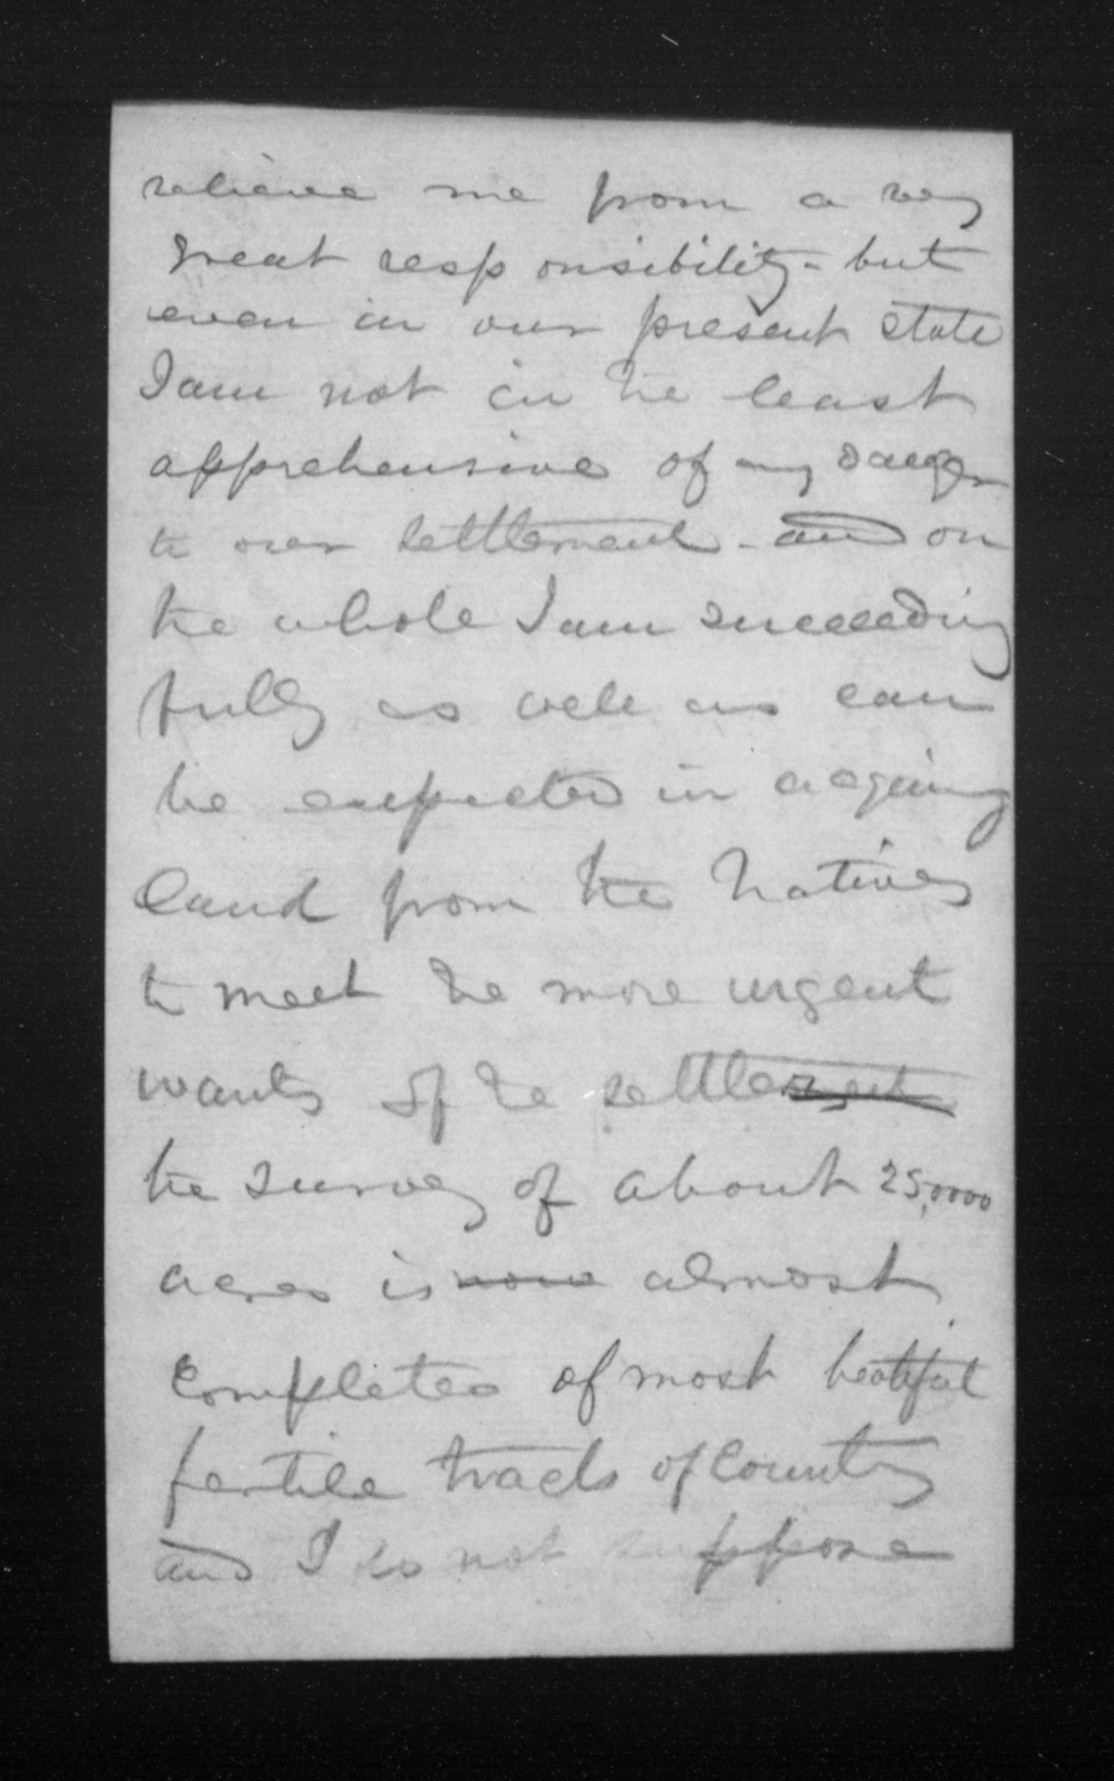 relieve me from a very
great responsibility - but
even in our present state
I am not in the least
apprehensive of any danger
to our settlement - and on
the whole I am succeeding
fully as well as can
be expected in acquiring
land from the Natives
to meet the more urgent
wants of the settlement
the survey of about 25,0000
acres is now almost
completed of most beatiful
fertile tracts of Country
and I do not suppose